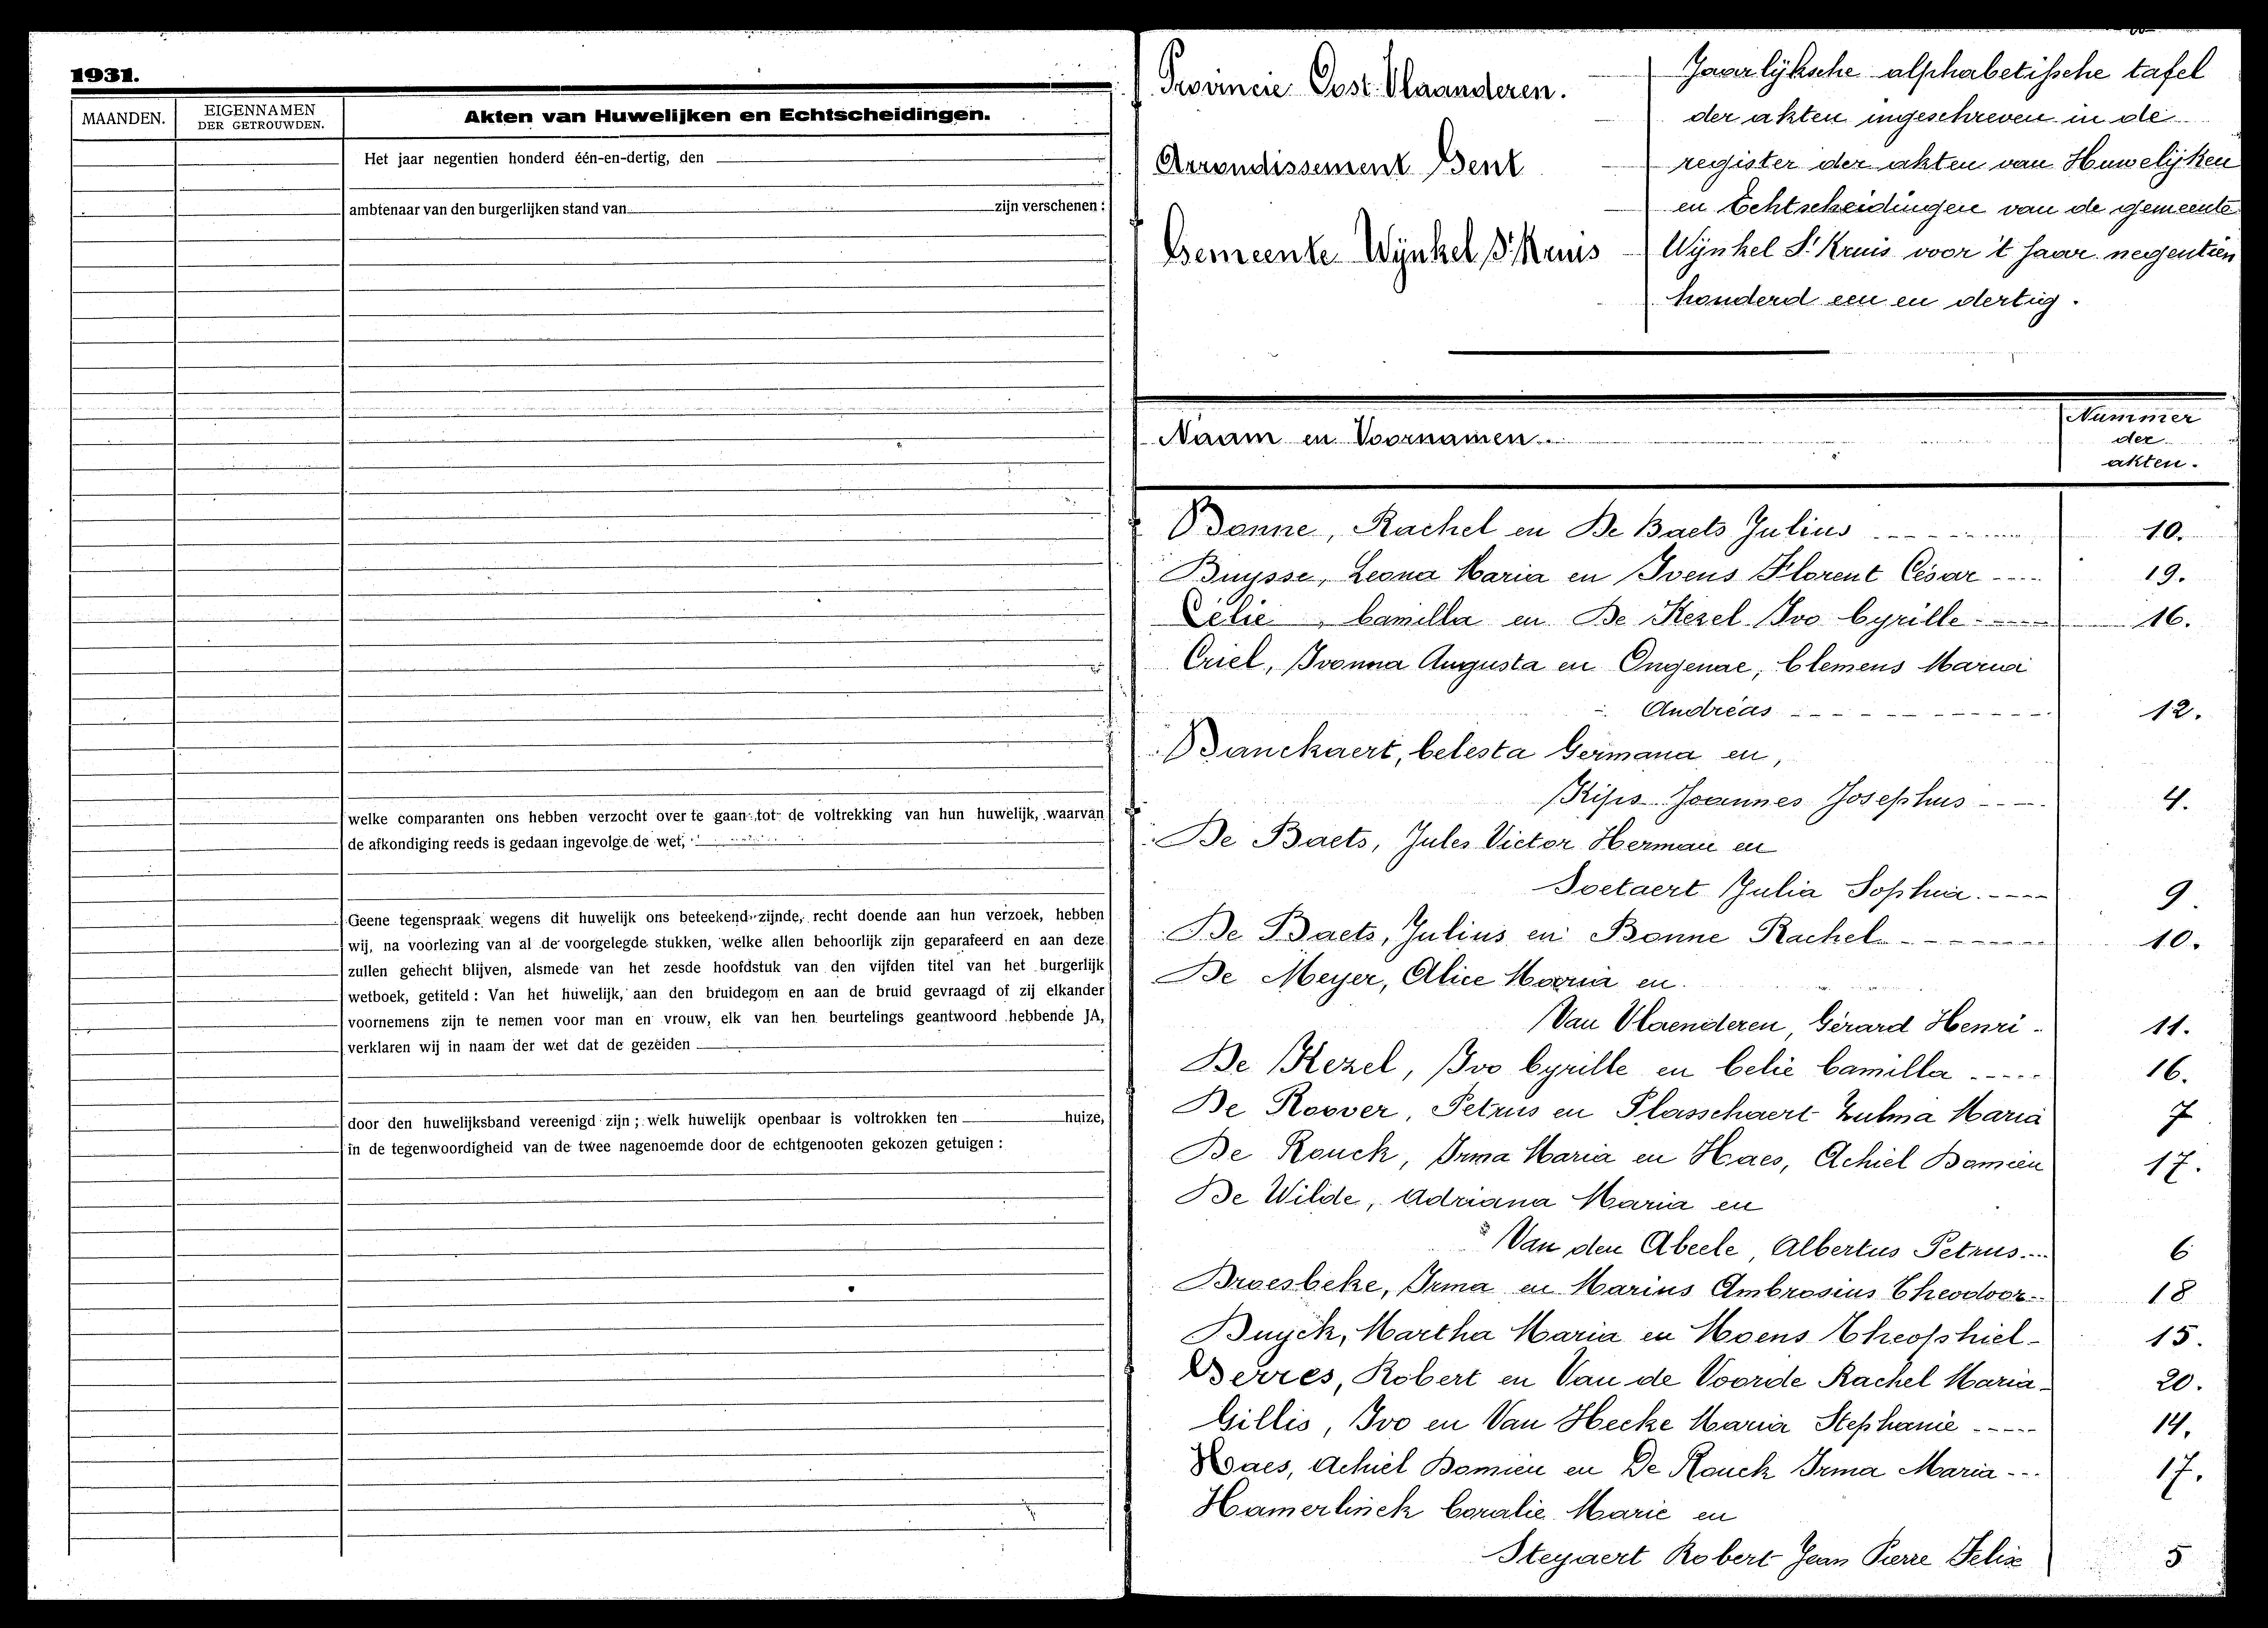 1931.
MAANDEN.
EIGENNAMEN
DER GETROUWDEN.
Akten van Huwelijken en Echtscheidingen.
Het jaar negentien honderd één-en-dertig, den
ambtenaar van den burgerlijken stand van zijn verschenen:
welke comparanten ons hebben verzocht over te gaan tot de voltrekking van hun huwelijk, waarvan
de afkondiging reeds is gedaan ingevolge de wet,
Geene tegenspraak wegens dit huwelijk ons beteekend zijnde, recht doende aan hun verzoek, hebben
wij, na voorlezing van al de voorgelegde stukken, welke allen behoorlijk zijn geparafeerd en aan deze
zullen gehecht blijven, alsmede van het zesde hoofdstuk van den vijfden titel van het burgerlijk
wetboek, getiteld: Van het huwelijk, aan den bruidegom en aan de bruid gevraagd of zij elkander
voornemens zijn te nemen voor man en vrouw, elk van hen beurtelings geantwoord hebbende JA,
verklaren wij in naam der wet dat de gezeiden
door den huwelijksband vereenigd zijn; welk huwelijk openbaar is voltrokken ten huize,
in de tegenwoordigheid van de twee nagenoemde door de echtgenooten gekozen getuigen:
Provincie Oost-Vlaanderen.
Arrondissement Gent
Gemeente Wynkel St Kruis
Jaarlyksche alphabetissche tafel
der akten ingeschreven in de
register der akten van Huwelijken
en Echtscheidingen van de gemeente
Wynkel St Kruis voor 't jaar negentien
honderd een en dertig.
Naam en Voornamen
Nummer
der
akten.
Bonne, Rachel en De Baets Julius 10.
Buysse, Leona Maria en Ivens Florent César 19.
Célie, Camilla en De Kezel Ivo Cyrille 16.
Criel, Ivonna Augusta en Ongenae, Clemens Maria
Andréas 12.
Danckaert, Celesta Germana en,
Kips Joannes Josephus 4.
De Baets, Jules Victor Herman en
Soetaert Julia Sophia. 9.
De Baets, Julius en Bonne Rachel 10.
De Meyer, Alice Maria en
Van Vlaenderen, Gérard Henri 11.
De Kezel, Ivo Cyrille en Celie Camilla 16.
De Roover, Petrus en Plasschaert Zulma Maria 7
De Rouck, Irma Maria en Haes, Achiel Damien 17.
De Wilde, Adriana Maria en
Van den Abeele, Albertus Petrus 6
Droesbeke, Irma en Marius Ambrosius Theodoor 18
Duyck, Martha Maria en Moens Theophiel 15.
Derres, Robert en Van de Voorde Rachel Maria 20.
Gillis, Ivo en Van Hecke Maria Stephanie 14.
Haes, Achiel Damien en De Rouck Irma Maria 17.
Hamerlinck Coralie Marie en
Steyaert Robert Jean Pierre Felix 5